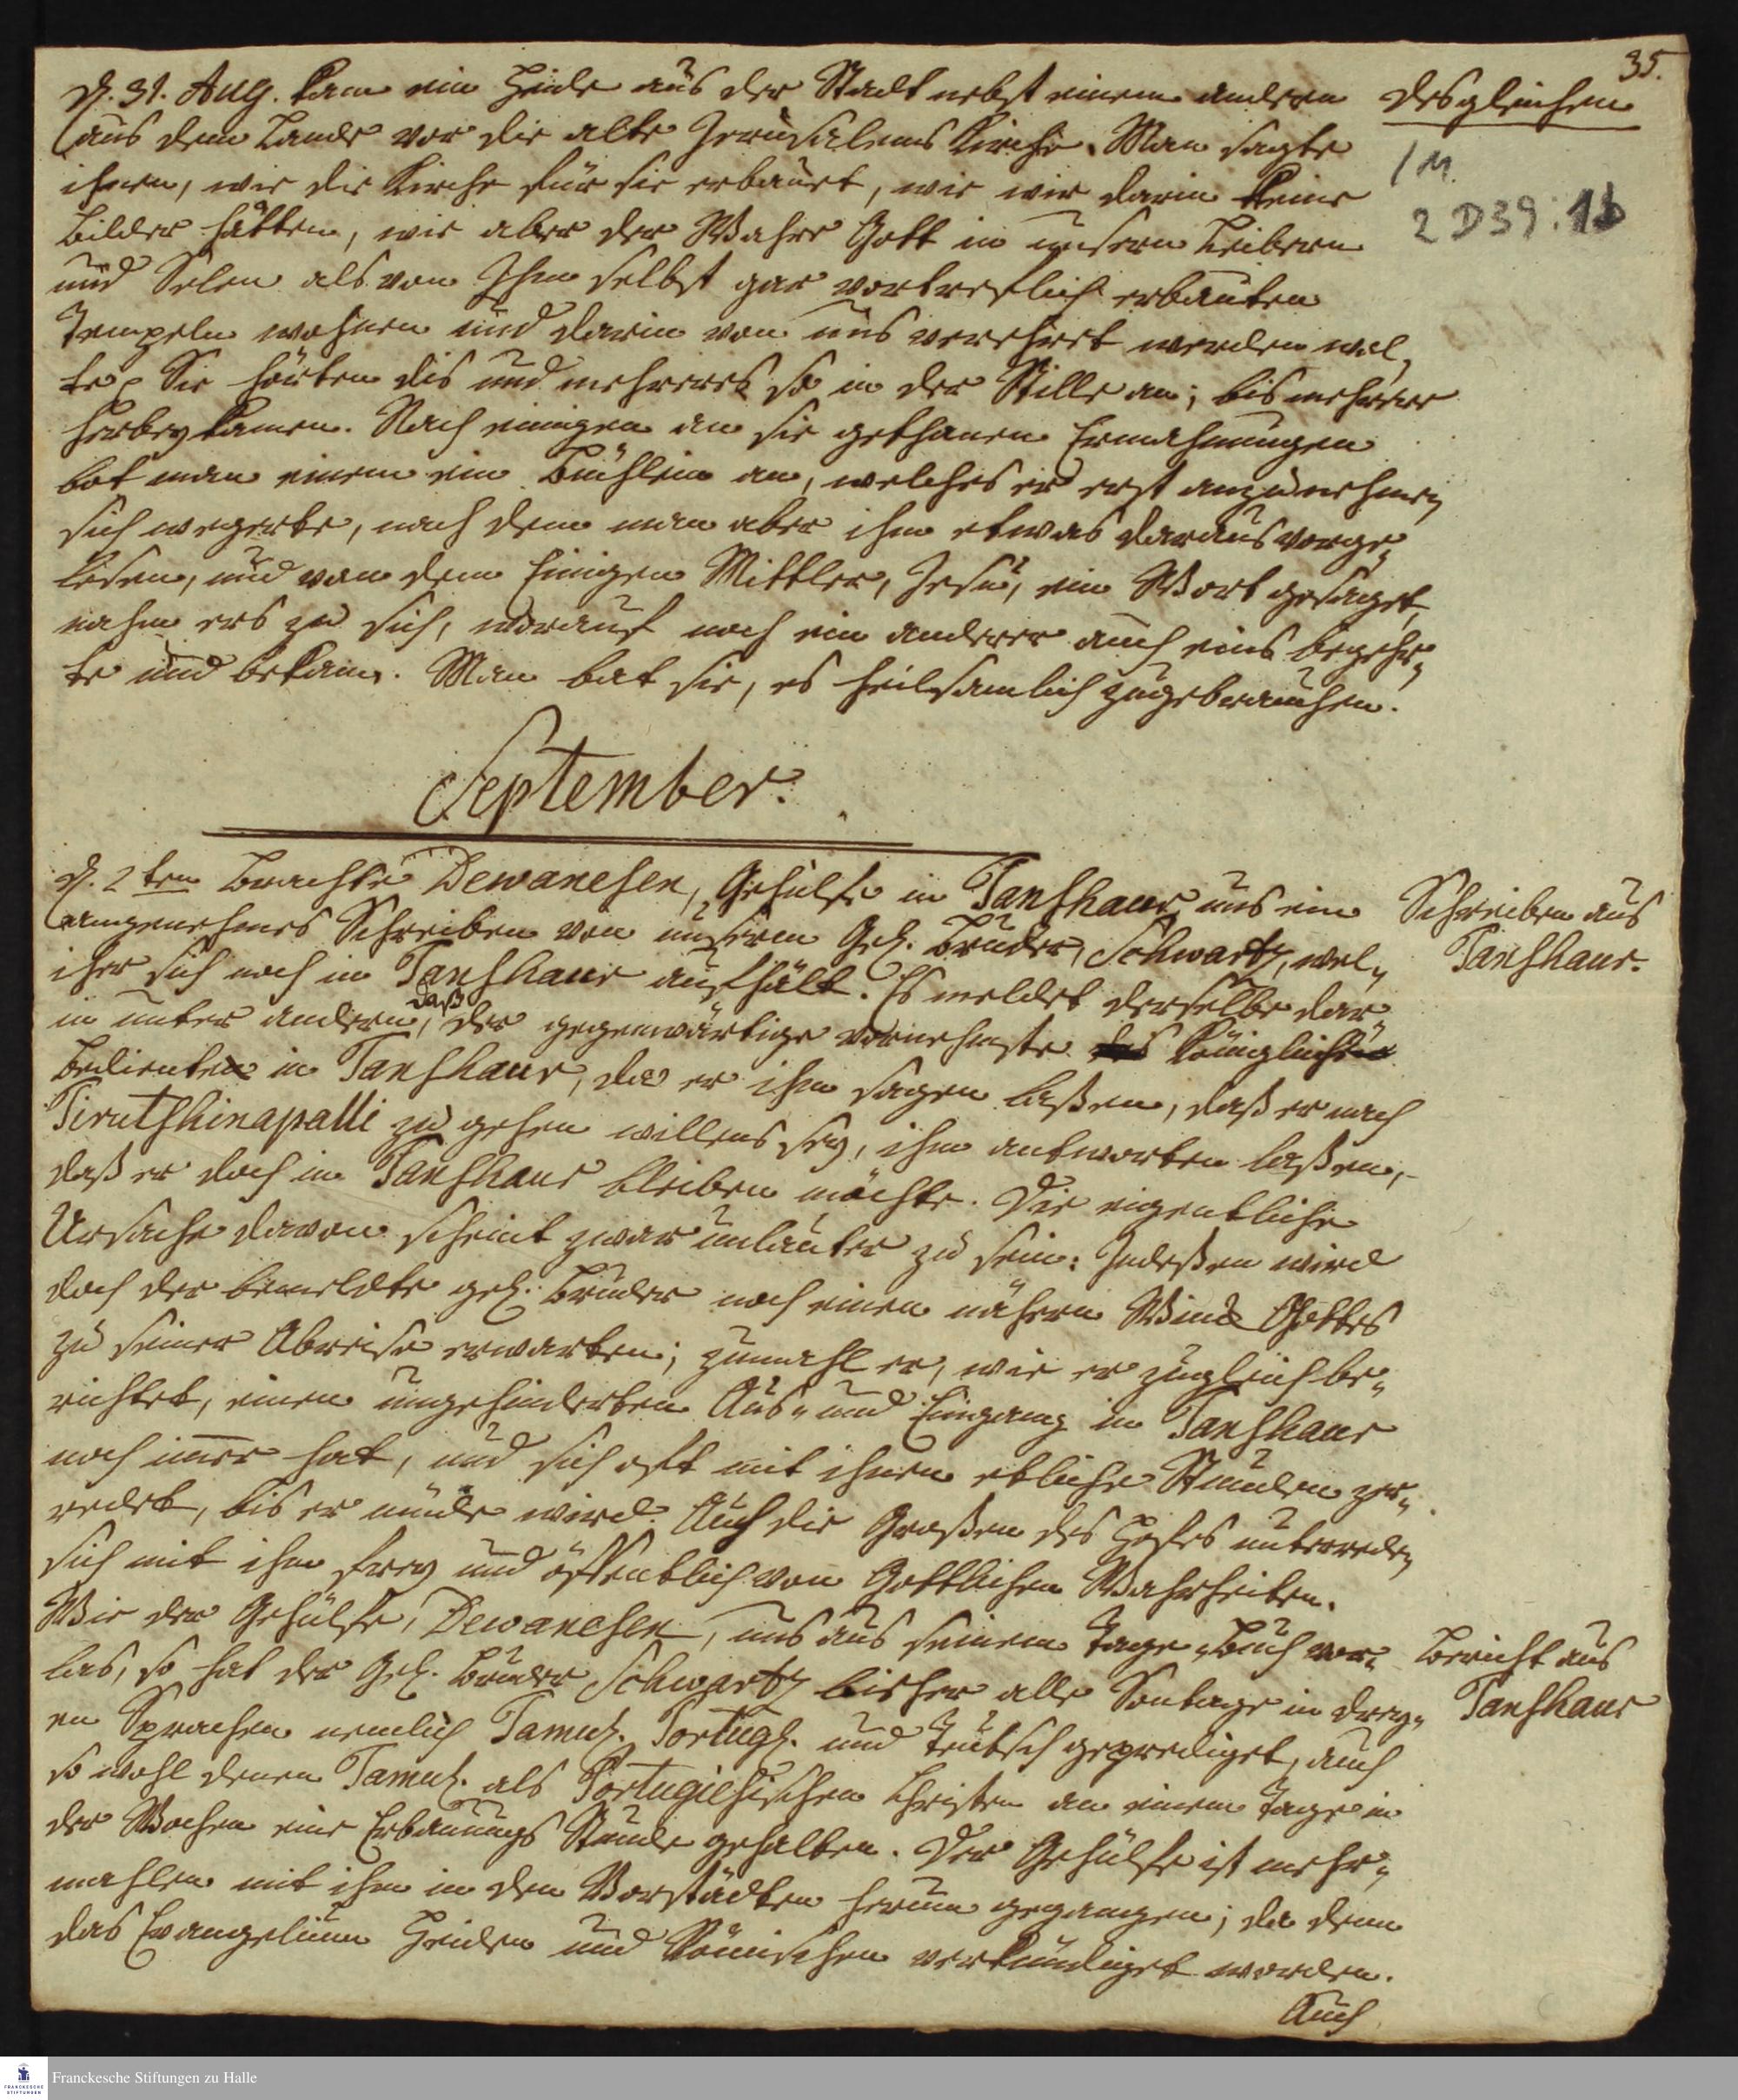 35.
D. 31. Aug. kam ein Heide aus der Stadt nebst einem andern
aus dem Lande vor die alte Jerusalems Kirche. Man sagte
ihnen, wie die Kirche für sie erbauet, wie wir darin keine
Bilder hätten, wie aber der Wahre Gott in unsern Leibern
und Selen als von Ihm selbst gar vortreflich erbauten
Tempeln wohnen und darin von uns verehret werden wol„
te. Sie hörten dis und mehreres so in der Stille an; bis mehrere
herbey kamen. Nach einigen an sie gethanen Ermahnungen
bot man einem ein Büchlein an, welches er erst anzunehmen
sich wegerte, nach dem man aber ihm etwas daraus vorge„
lesen, und von dem Einigen Mittler, Jesu, ein Wort gesaget,
nahm ers zu sich, worauf noch ein anderer auch eins begehr„
te und bekam. Man bat sie, es heilsamlich zugebrauchen.
desgleichen
/ M.
2 D39:1b
September.
D. 2ten brachte Dewanesen, Gehülfe in Tanshaur uns ein
angenehmes Schreiben von unserm Gel. Bruder, Schwartz, wel„
cher sich noch in Tanshaur aufhält. Es meldet derselbe dar
in unter andern, daß der gegenwärtige vornehmste Königliche
Bediente in Tanshaur, da er ihm sagen laßen, daß er nach
Tirutshinapalli zu gehen willens sey, ihm antworten laßen,
daß er doch in Tanshaur bleiben möchte. Die eigentliche
Ursache davon scheint zwar unlauter zu sein: Indeßen wird
doch der bemeldte gel. Bruder noch einen nähern Wink Gottes
zu seiner Abreise erwarten; zumahl er, wie er zugleich be„
richtet, einen ungehinderten Aus- und Eingang in Tanshaur
noch im̅er hat, und sich oft mit ihnen etliche Stunden
redet, bis er müde wird. Auch die Großen des Hofes unterreden
sich mit ihm frey und öffentlich von Göttlichen Wahrheiten.
Wie der Gehülfe, Dewanesen, uns aus seinem Tage-Buch vor„
las, so hat der Gel. Bruder Schwartz bisher alle Sontage in drey„
en Sprachen nemlich Tamul. Portug. und Teutsch geprediget, auch
so wohl denen Tamul. als Portugiesischen Christen an einem Tage in
der Wochen eine Erbauungs Stunde gehalten. Der Gehülfe ist mehr„
mahlen mit ihm in den Vorstädten herum gegangen; da denn
das Evangelium Heiden und Römischen verkündiget worden.
Auch
Schreiben aus
Tanshaur.
Bericht aus
Tanshaur
Franckesche Stiftungen zu Halle